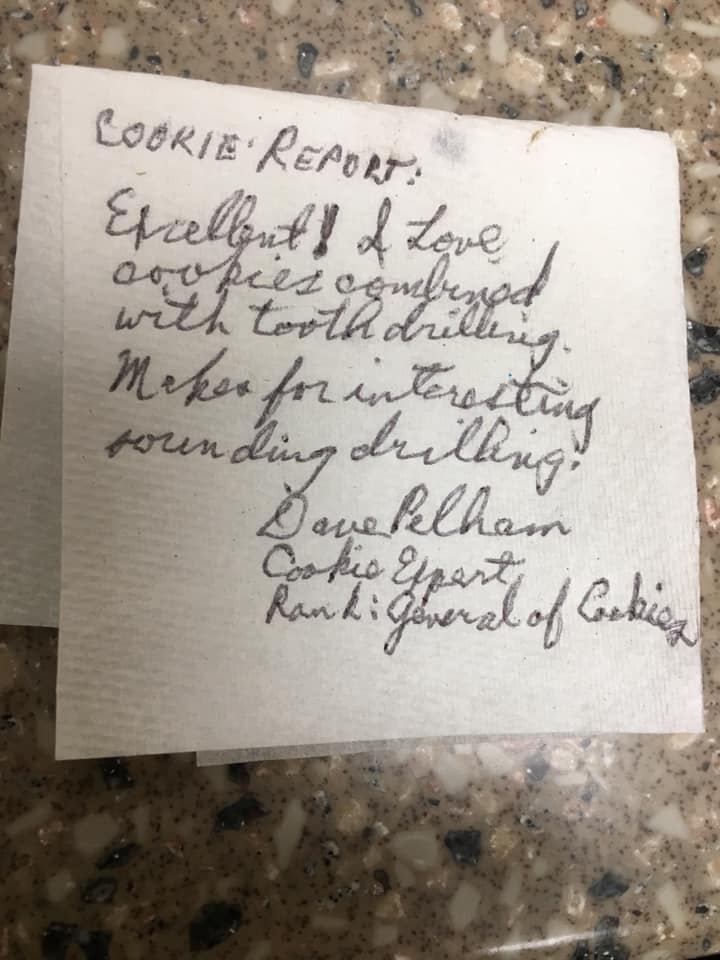 COOKIE REPORT:
Excellent! I Love
cookies combined
with tooth drilling.
Makes for interesting
sounding drilling.
Dave Pelham
Cookie Expert
Rank: General of Cookies